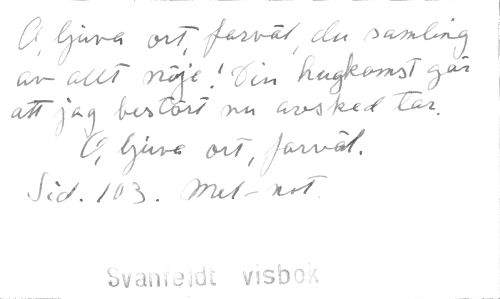 O, ljuva ort, farväl, du samling
av allt nöje! Din hugkomst gör
att jag bestört nu avsked tar.
O, ljuva ort, farväl.
Sid. 103. Mel-not.
Svanfeldt visbok